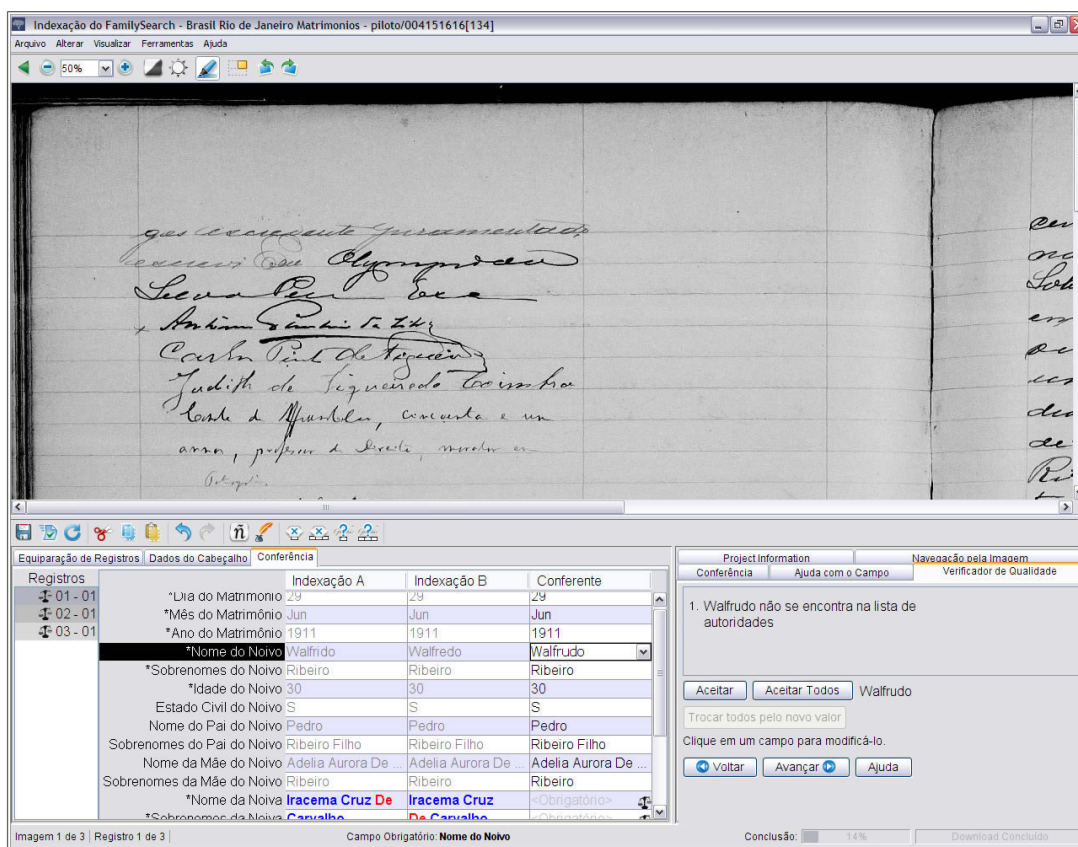 Indexação do FamilySearch - Brasil Rio de Janeiro Matrimonios - piloto/004151616[134]
Arquivo Alterar Visualizar Ferramentas Ajuda
50%
escrevi Eu Olympio da
Silva Pereira
Carlos Pinto de Figueiredo
Judith de Figueiredo Coimbra
Conde de Affonso Celso, cincoenta e um
annos, professor de Direito, morador em
Petropolis
ñ
Equiparação de Registros Dados do Cabeçalho Conferência
Registros
01 - 01
02 - 01
03 - 01
Indexação A Indexação B Conferente
*Dia do Matrimônio 29 29 29
*Mês do Matrimônio Jun Jun Jun
*Ano do Matrimônio 1911 1911 1911
*Nome do Noivo Walfrido Walfredo Walfrudo
*Sobrenomes do Noivo Ribeiro Ribeiro Ribeiro
*Idade do Noivo 30 30 30
Estado Civil do Noivo S S S
Nome do Pai do Noivo Pedro Pedro Pedro
Sobrenomes do Pai do Noivo Ribeiro Filho Ribeiro Filho Ribeiro Filho
Nome da Mãe do Noivo Adelia Aurora De ... Adelia Aurora De ... Adelia Aurora De ...
Sobrenomes da Mãe do Noivo Ribeiro Ribeiro Ribeiro
*Nome da Noiva Iracema Cruz De Iracema Cruz <Obrigatório>
*Sobrenomes da Noiva Carvalho De Carvalho <Obrigatório>
Project Information Navegação pela Imagem
Conferência Ajuda com o Campo Verificador de Qualidade
1. Walfrudo não se encontra na lista de
autoridades
Aceitar Aceitar Todos Walfrudo
Trocar todos pelo novo valor
Clique em um campo para modificá-lo.
Voltar Avançar Ajuda
Imagem 1 de 3 Registro 1 de 3 Campo Obrigatório: Nome do Noivo Conclusão: 14% Download Concluído